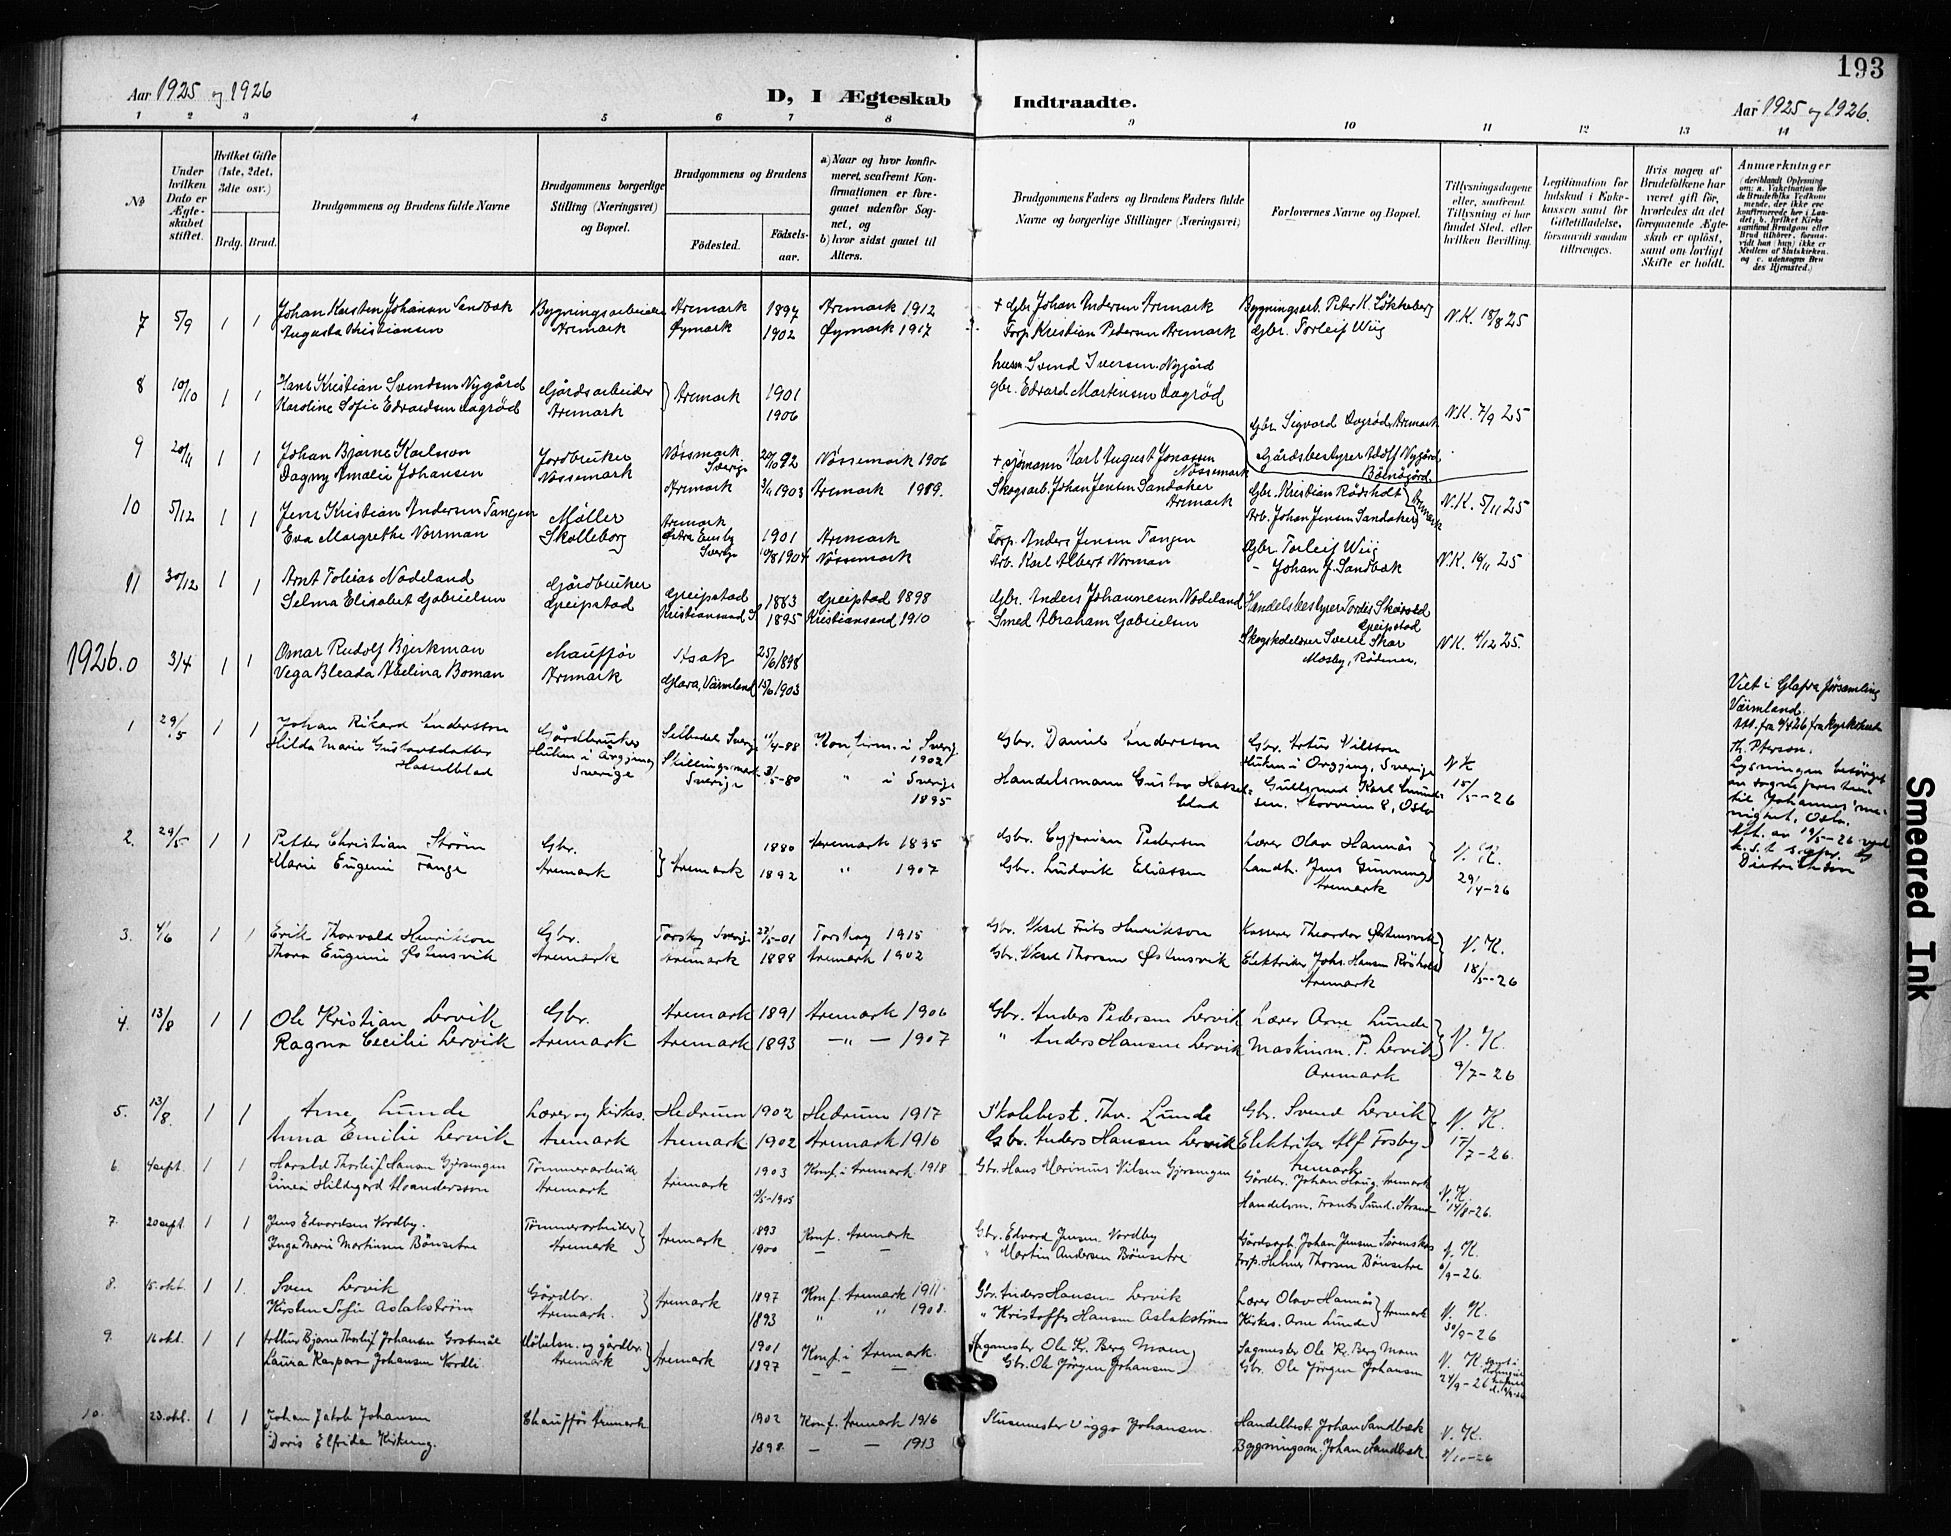 193
Aar 1925 og 1926
D, I Ægteskab Indtraadte.
Aar 1925 og 1926.
1 2 3 4 5 6 7 8 9 10 11 12 13 14
No
Under hvilken Dato er Ægteskabet stiftet.
Hvilket Gifte (1ste, 2det, 3die osv.)
Brdg. Brud.
Brudgommens og Brudens fulde Navne
Brudgommens borgerlige Stilling (Næringsvei) og Bopæl.
Brudgommens og Brudens
Fødested.
Fødselsaar.
a) Naar og hvor konfirmeret, saafremt Konfirmationen er foregaaet udenfor Sognet, og
b) hvor sidst gaaet til Alters.
Brudgommens Faders og Brudens Faders fulde Navne og borgerlige Stillinger (Næringsvei)
Forlovernes Navne og Bopæl.
Tillysningsdagene eller, saafremt Tillysning ei har fundet Sted, efter hvilken Bevilling.
Legitimation for Indskud i Enkekassen samt for Giftetilladelse, forsaavidt saadan tiltrænges.
Hvis nogen af Brudefolkene har været gift før, hvorledes da det foregaaende Ægteskab er opløst, samt om lovligt Skifte er holdt.
Anmærkninger
7 5/9 1 1 Johan Karsten Johansen Sandbæk Bygningsarbeider Aremark 1897 Aremark 1912 + Gbr. Johan Andersen Aremark Bygningsarb. Peter K. Løkkeberg N.K. 18/8 25
Augusta Kristiansen Aremark Øymark 1902 Øymark 1917 Forp. Kristian Pedersen Aremark Gbr. Torleif Wiig
8 10/10 1 1 Hans Kristian Svendsen Nygård Gårdsarbeider Aremark 1901 husm. Svend Iversen Nygård
Karoline Sofie Edvardsen Dagrød Aremark 1906 gbr. Edvard Martinsen Dagrød Gbr. Sigvard Dagrød, Aremark N.K. 7/9 25
Gårdsbestyrer Adolf Nygård
9 20/11 1 1 Johan Bjarne Karlsson Jordbruker Nøssmark Sverige 20/10 92 Nøssemark 1906 + sjømann Karl August Jonassen Nøssemark Gbr. Kristian Rødsholt N.K. 5/11 25
Dagny Amalie Johansen Nøssemark Aremark 3/11 1903 Aremark 1919. Skogsarb. Johan Jensen Sandaker Aremark Arb. Johan Jensen Sandaker Aremark
10 5/12 1 1 Jens Kristian Andersen Tangen Møller Aremark 1901 Aremark Forp. Anders Jensen Tangen Gbr. Torleif Wiig N.K. 16/11 25
Eva Margrethe Norman Skolleborg Østra Emsby Sverige 10/8 1904 Nøssemark Arb. Karl Albert Norman - Johan J. Sandbæk
11 30/12 1 1 Arnt Tobias Nodeland Gårdbruker Greipstad 1883 Greipstad 1898 Gbr. Anders Johannesen Nodeland Handelsbestyrer Tordis Skarsld Greipstad N.K. 4/12 25.
Selma Elisabet Gabrielsen Greipstad Kristiansand S. 1895 Kristiansand 1910 Smed Abraham Gabrielsen Skogskolelærer Sverre Skar Mosby, Rødenes.
1926. 0 3/4 1 1 Omar Rudolf Bjerkman Chauffør Asak 25/6 1898
Vega Bleada Abelina Boman Aremark Glava, Värmland 15/6 1903 Viet i Glafva församling Värmland.
1 29/5 1 1 Johan Rikard Andersson Gårdbruker Sillbodal Sverige 11/4-88 Konfirm. i Sverige 1902 Gbr. Daniel Andersson Gbr. Artur Nilsson N.K. 15/5-26
Hilda Marie Gustavsdatter Hasselblad Huken i Årgjeng Sverige Skillingsmark Sverige 3/5-80 " i Sverige 1895 Handelsmann Gustav Hasselblad Huken i Årgjeng, Sverige Gullsmed Karl Skovveien 8, Oslo
Lysningen besørget av sognepresten til Johannes menighet, Oslo.
2. 29/5 1 1 Petter Christian Strøm Gbr. Aremark 1880 Aremark 1895 Gbr. Cyprian Pedersen Lærer Olav Hannås V. K. 29/4-26
Marie Eugenie Tange Aremark 1892 " 1907 Gbr. Ludvik Eliassen Landh. Jens Gunneng Aremark
3. 4/6 1 1 Erik Thorvald Henrikson Gbr. Torskog Sverige 23/5-01 Torskog 1915 Gbr. Aksel Frits Henrikson Kasserer Theodor Østensvik V. K. 18/5-26
Thora Eugenie Østensvik Aremark Aremark 1888 Aremark 1902 Gbr. Aksel Thorsen Østensvik Elektriker Johs. Hansen Røsholt Aremark
4. 13/8 1 1 Ole Kristian Lervik Gbr. Aremark 1891 Aremark 1906 Gbr. Anders Pedersen Lervik Lærer Arne Lunde V. K. 9/7-26
Ragna Cecilie Lervik Aremark Aremark 1893 -"- 1907 " Anders Hansen Lervik Maskinm. P. Lervik Aremark
5. 13/8. 1 1 Arne Lunde Lærer og kirkes. Hedrum 1902 Hedrum 1917 Skolebest. Thv. Lunde Gbr. Svend Lervik V. K. 17/7-26.
Anna Emilie Lervik Aremark Aremark 1902 Aremark 1916 Gbr. Anders Hansen Lervik Elektriker Alf Fosby Aremark
6. 4 sept. 1 1 Harald Thorleif Hansen Gjersengen Tømmerarbeider Aremark 1903 Konf. i Aremark 1918. Gbr. Hans Marinius Nilsen Gjersengen Gårdbr. Johan Haug, Aremark V. K. 14/8-26.
Linea Hildegard Aleandersson Aremark 9/5-1905 Handelsm. Frants Sund. Strand
7. 20 sept. 1 1 Jens Edvardsen Nordby. Tømmerarbeider Aremark 1893 Konf. Aremark Gbr. Edvard Jensen Nordby Gårdsarb. Johan Jensen Sørenskog V. K. 6/9-26.
Inga Marie Martinsen Bønsetre Aremark 1900 - - " Martin Andersen Bønsetre Forp. Helmer Thorsen Bønsetre
8. 15. okt. 1 1. Sven Lervik Gårdbr. Aremark 1897 Konf. Aremark 1911. Gbr. Anders Hansen Lervik Lærer Olav Hannås Aremark V. K. 30/9-26
Kirsten Sofie Aslakstrøm Aremark. 1893 " " 1908. " Kristoffer Hansen Aslakstrøm Kirkes. Arne Lunde
9. 16 okt. 1 1 Arthur Bjarne Thorleif Johansen Grostmål Møbelsn. og gårdbr. Aremark 1901 Konf. i Aremark. (Sagmester Ole Kr. Berg Moen) Sagmester Ole Kr. Berg Moen V. K. 24/9-26
Laura Kaspara Johansen Nordli Aremark 1897 - - Gbr. Ole Jørgen Johansen Gbr. Ole Jørgen Johansen
10. 23. okt. 1 1 Johan Jakob Johansen Chauffør Aremark 1902 Konf. Aremark 1916 Slusemester Viggo Johansen. Handelbest. Johan Sandbæk V. K. 8/10-26
Doris Elfrida Kirkeng. 1898. - - 1913 Byggningsm. Johan Sandbæk
Smeared Ink